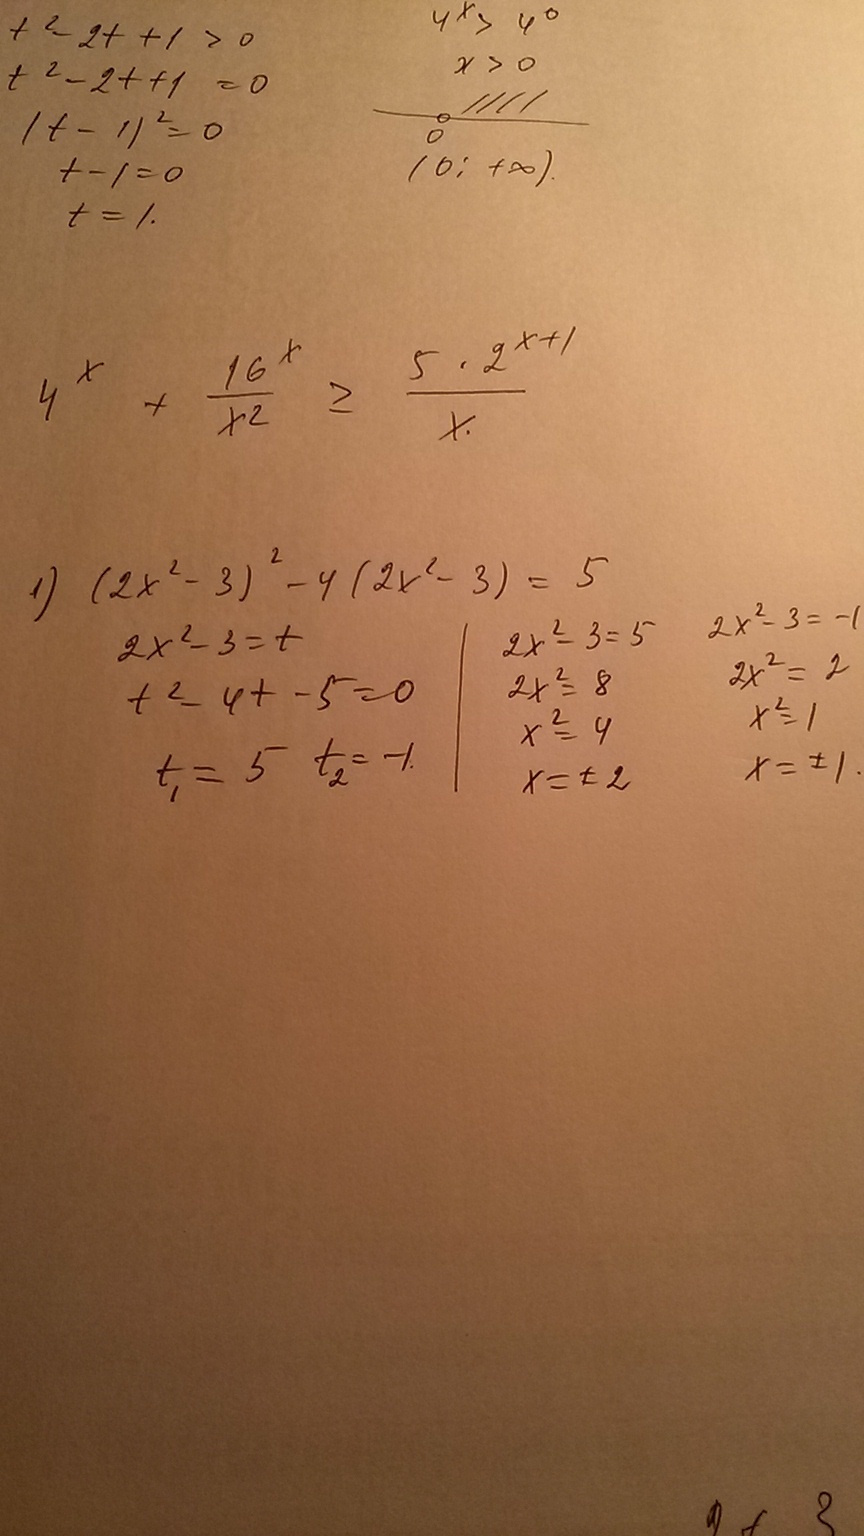 t² - 2t + 1 > 0
t² - 2t + 1 = 0
(t - 1)² = 0
t - 1 = 0
t = 1.
4^x > 4^0
x > 0
////
0
(0; +∞).
4^x + 16^x/x² ≥ 5 · 2^(x+1)/x.
1) (2x² - 3)² - 4(2x² - 3) = 5
2x² - 3 = t
t² - 4t - 5 = 0
t₁ = 5 t₂ = -1.
2x² - 3 = 5
2x² = 8
x² = 4
x = ±2
2x² - 3 = -1
2x² = 2
x² = 1
x = ±1.